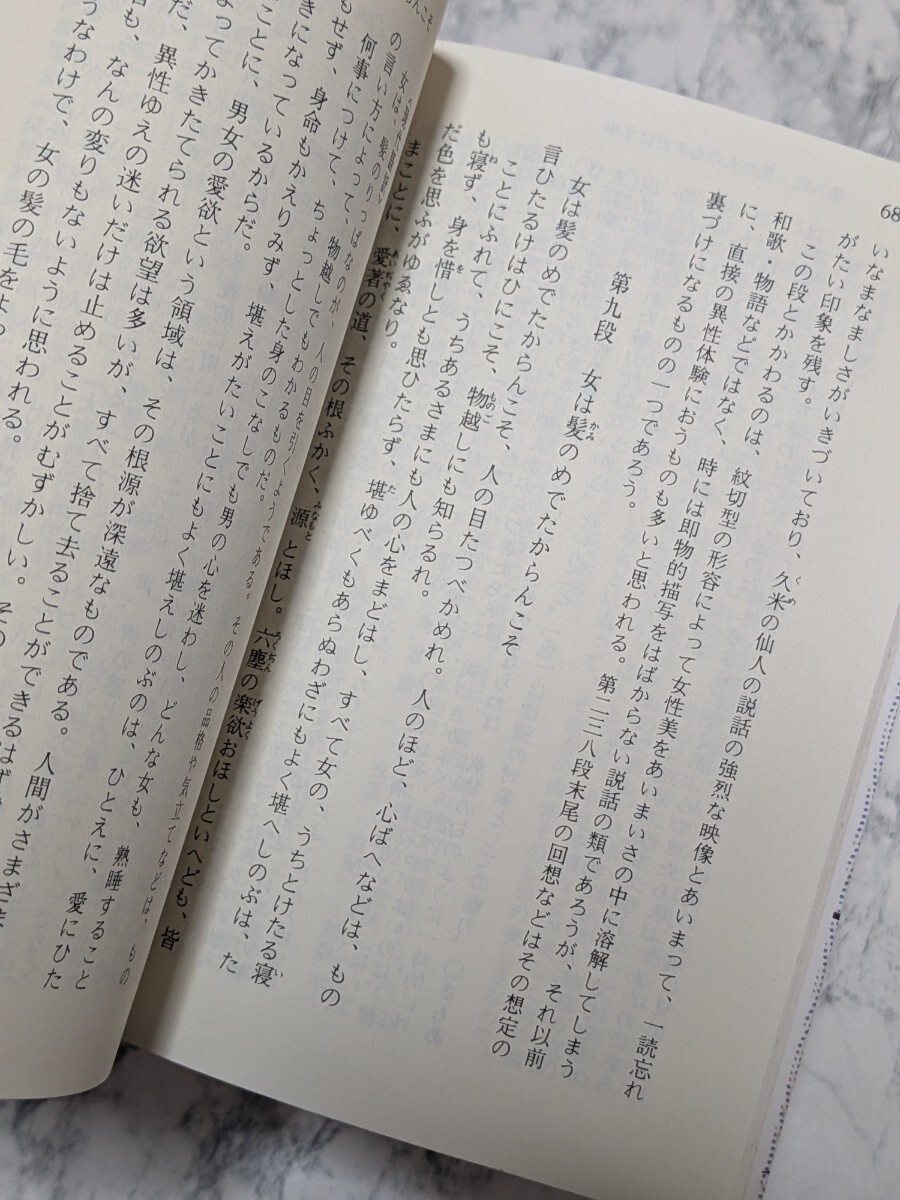 68
いなまなましさがいきづいており、久米の仙人の説話の強烈な映像とあいまって、一読忘れ
がたい印象を残す。
この段とかかわるのは、
和歌・物語などではなく、紋切型の形容によって女性美をあいまいさの中に溶解してしまう
に、直接の異性体験におうものも多いと思われる。時には即物的描写をはばからない説話の類であろうが、それ以前
裏づけになるものの一つであろう。第二三八段末尾の回想などはその想定の
第九段 女は髪のめでたからんこそ
女は髪のめでたからんこそ、人の目たつべかめれ。人のほど、心ばへなどは、もの
言ひたるけはひにこそ、物越しにも知らるれ。
ことにふれて、うちあるさまにも人の心をまどはし、すべて女の、うちとけたる寝
も寝ず、身を惜しとも思ひたらず、堪ゆべくもあらぬわざにもよく堪へしのぶは、た
だ色を思ふがゆゑなり。
まことに、愛著の道、その根ふかく、源とほし。六塵の楽欲おほしといへども、皆
んこそ
女は、
の言い方によって、髪のりっぱなのが、人の目を引くようである。その人の品格や気立てなどは、もの
何事につけて、物越しでもわかるものだ。
ちょっとした身のこなしでも男の心を迷わし、どんな女も、熟睡すること
もせず、身命もかえりみず、堪えがたいことにもよく堪えしのぶのは、ひとえに、愛にひた
きになっているからだ。
ことに、男女の愛欲という領域は、その根源が深遠なものである。人間がさまざま
よってかきたてられる欲望は多いが、すべて捨て去ることができるはず
だ、異性ゆえの迷いだけは止めることがむずかしい。その
も、なんの変りもないように思われる。
うなわけで、女の髪の毛をよっ